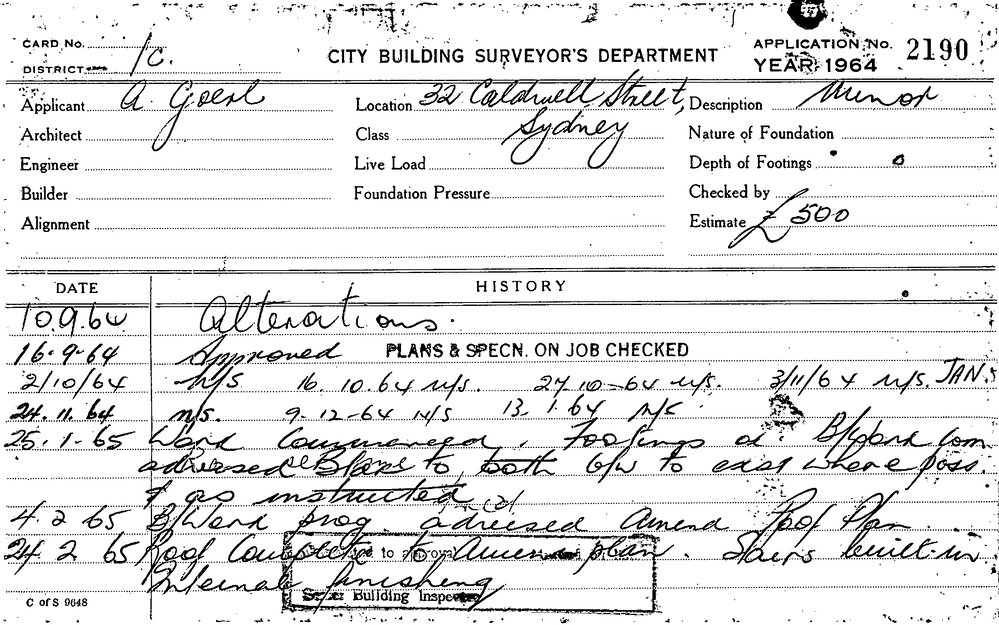 CARD No. CITY BUILDING SURVEYOR'S DEPARTMENT APPLICATION No. 2190
DISTRICT 1/c. YEAR 1964
Applicant A Goerl Location 32 Caldwell Street, Description Minor
Architect Class Sydney Nature of Foundation
Engineer Live Load Depth of Footings
Builder Foundation Pressure Checked by
Alignment Estimate £500
DATE HISTORY
10.9.64 Alterations.
16.9.64 Approved PLANS & SPECN. ON JOB CHECKED
2/10/64 n/s 16.10.64 n/s. 27.10-64 n/s. 3/11/64 n/s. JAN. 5
24.11.64 n/s. 9-12-64 N/S 13.1.64 N/S
25.1.65 Work Commenced. Footings B/Work com
advised to tooth b/w to exist where poss.
& as instructed
4.2.65 B/Work prog. advised Amend Roof Plan.
24.2.65 Roof Complete to Amend plan. Stairs built-in
to approval
Internal finishing
Building Inspector
C of S 9648